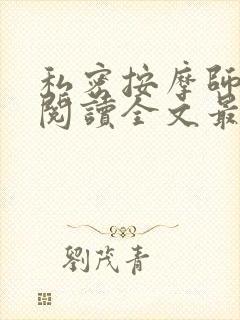 私密按摩師
閱讀全文最
劉茂青